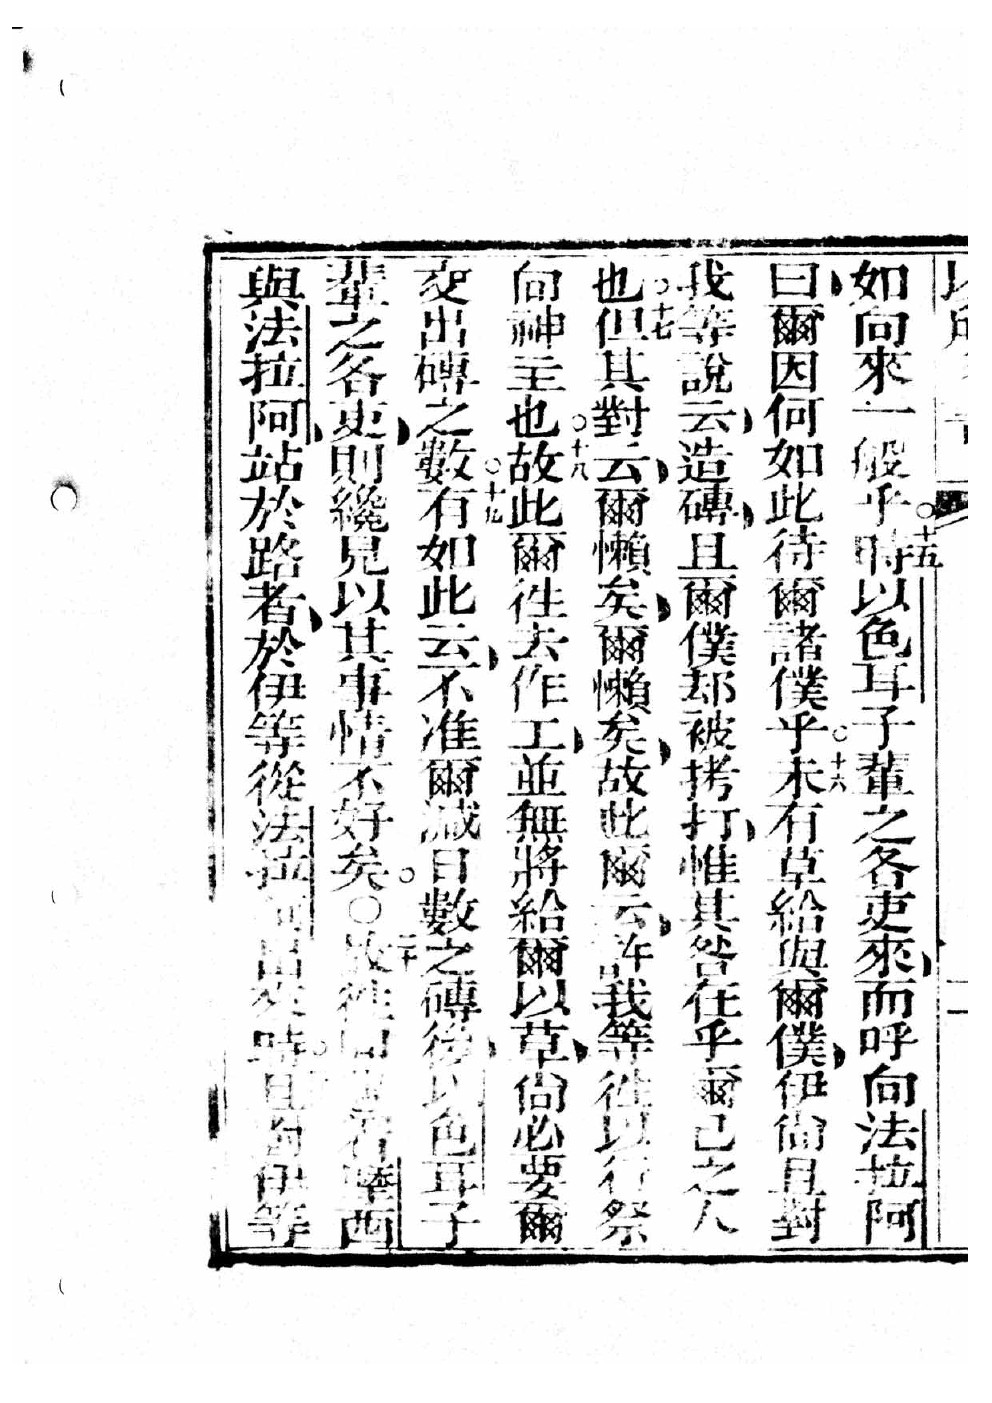 如向來一般乎○十五時以色耳子輩之各吏來而呼向法拉阿
曰爾因何如此待爾諸僕乎○十六未有草給與爾僕伊尙且對
我等說云造磚且爾僕却被拷打惟其咎在乎爾己之人
也○十七但其對云爾懶矣爾懶矣故此爾云許我等徃以行祭
向神主也○十八故此爾徃去作工並無將給爾以草尙必要爾
交出磚之數○十九有如此云不准爾减日數之磚後以色耳子
輩之各吏則纔見以其事情不好矣○二十
與法拉阿站於路者於伊等從法拉阿出來時且對伊等